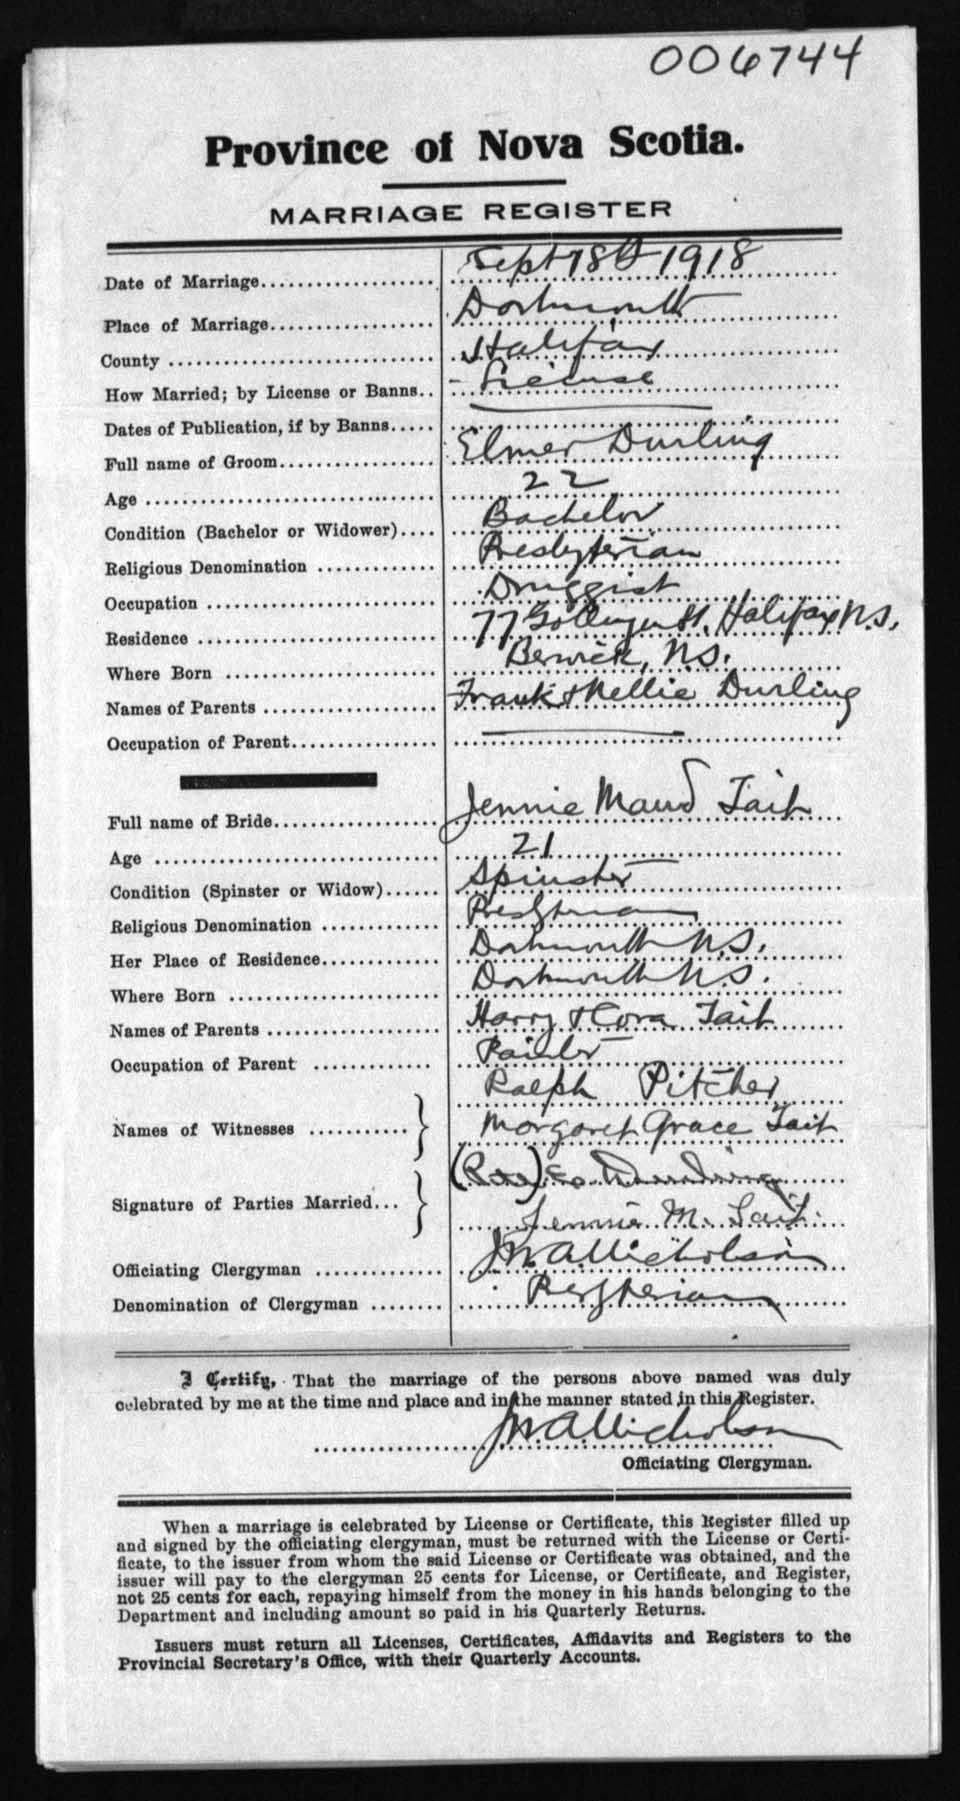 006744
Province of Nova Scotia.
MARRIAGE REGISTER
Date of Marriage Sept 18th 1918
Place of Marriage Dartmouth
County Halifax
How Married; by License or Banns License
Dates of Publication, if by Banns
Full name of Groom Elmer Durling
Age 22
Condition (Bachelor or Widower) Bachelor
Religious Denomination Presbyterian
Occupation Druggist
Residence 77 Gottingen St. Halifax N.S.
Where Born Berwick, N.S.
Names of Parents Frank & Nellie Durling
Occupation of Parent
Full name of Bride Jennie Maud Tait
Age 21
Condition (Spinster or Widow) Spinster
Religious Denomination Presbyterian
Her Place of Residence Dartmouth N.S.
Where Born Dartmouth N.S.
Names of Parents Harry & Cora Tait
Occupation of Parent Painter
Ralph Pitcher
Names of Witnesses Margaret Grace Tait
(Pte) E. Durling
Signature of Parties Married Jennie M. Tait
Officiating Clergyman Nicholson
Denomination of Clergyman Presbyterian
I Certify, That the marriage of the persons above named was duly
celebrated by me at the time and place and in the manner stated in this Register.
Nicholson
Officiating Clergyman.
When a marriage is celebrated by License or Certificate, this Register filled up
and signed by the officiating clergyman, must be returned with the License or Certi-
ficate, to the issuer from whom the said License or Certificate was obtained, and the
issuer will pay to the clergyman 25 cents for License, or Certificate, and Register,
not 25 cents for each, repaying himself from the money in his hands belonging to the
Department and including amount so paid in his Quarterly Returns.
Issuers must return all Licenses, Certificates, Affidavits and Registers to the
Provincial Secretary's Office, with their Quarterly Accounts.